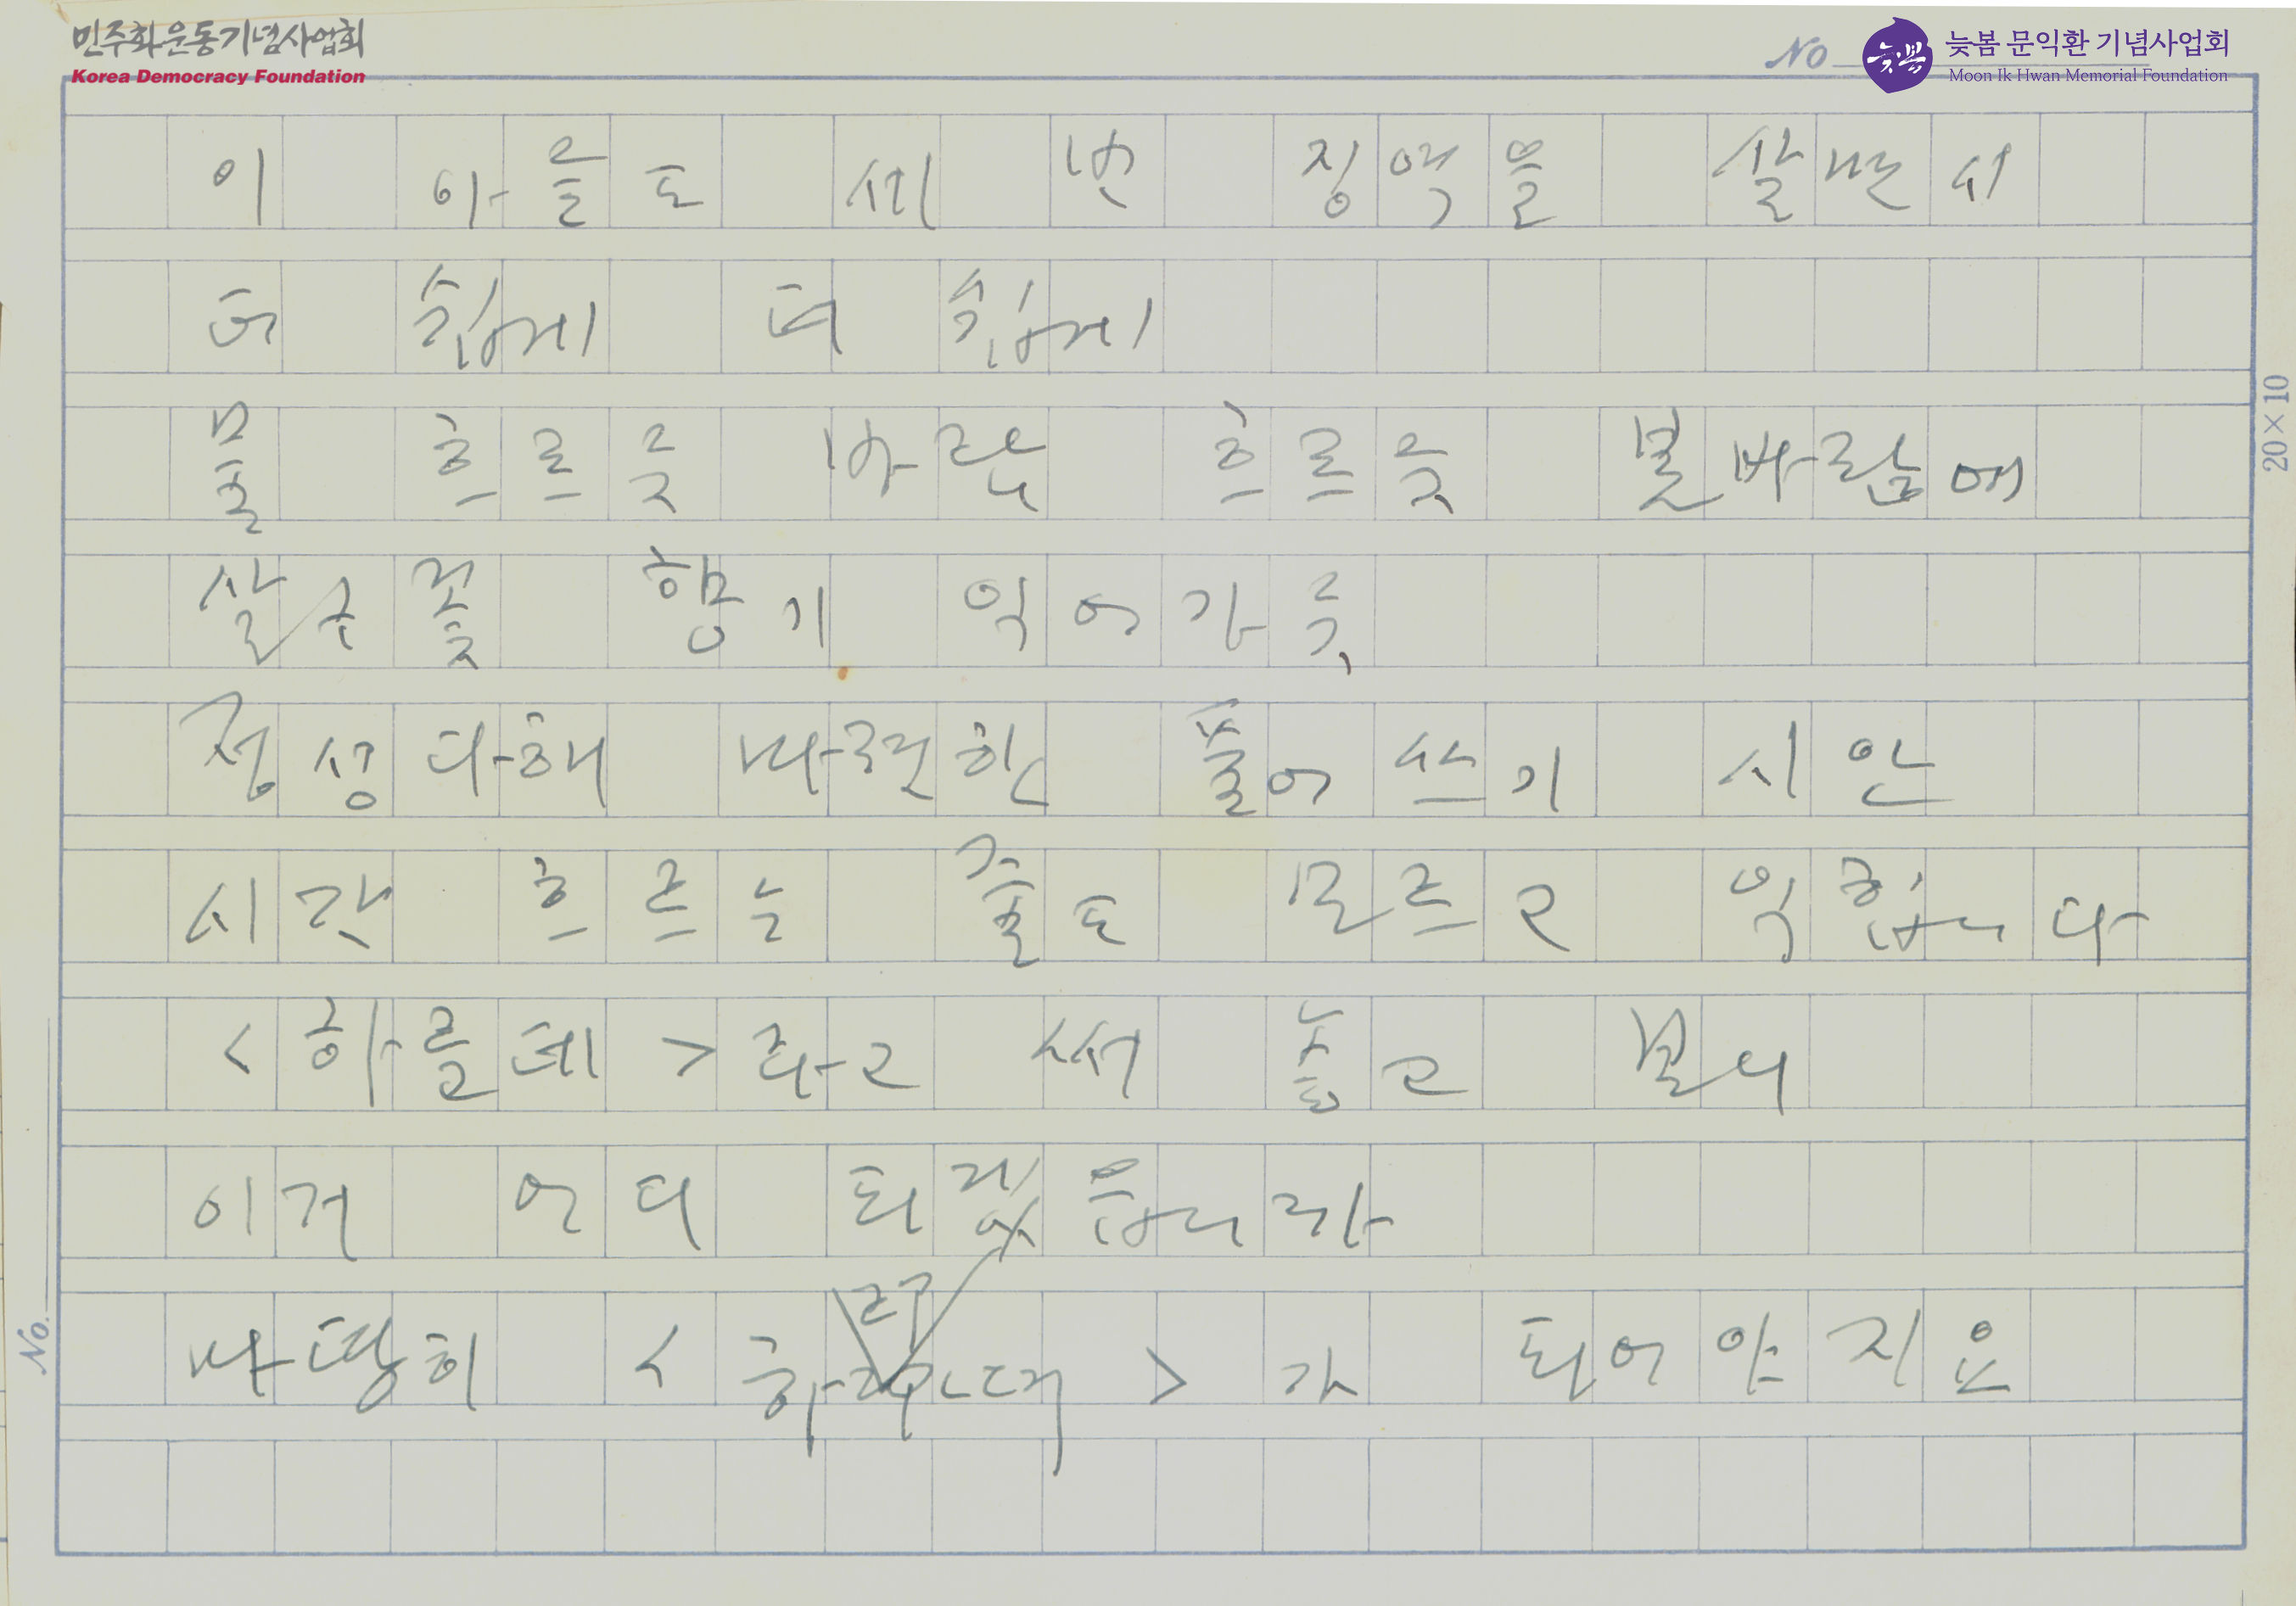 민주화운동기념사업회
Korea Democracy Foundation
No
늦봄
늦봄 문익환 기념사업회
Moon Ik Hwan Memorial Foundation
이 아들도 세 번 징역을 살면서
더 쉽게 더 쉽게
물 흐르듯 바람 흐르듯 봄바람에
살구꽃 향기 익어가듯
정성 다해 마련한 풀어 쓰기 시안
시간 흐르는 줄도 모르고 익힙니다
<하를데>라고 써 놓고 보니
이거 어디 되겠습니까
마땅히 < 하 > 가 되어야지요
20×10
No.